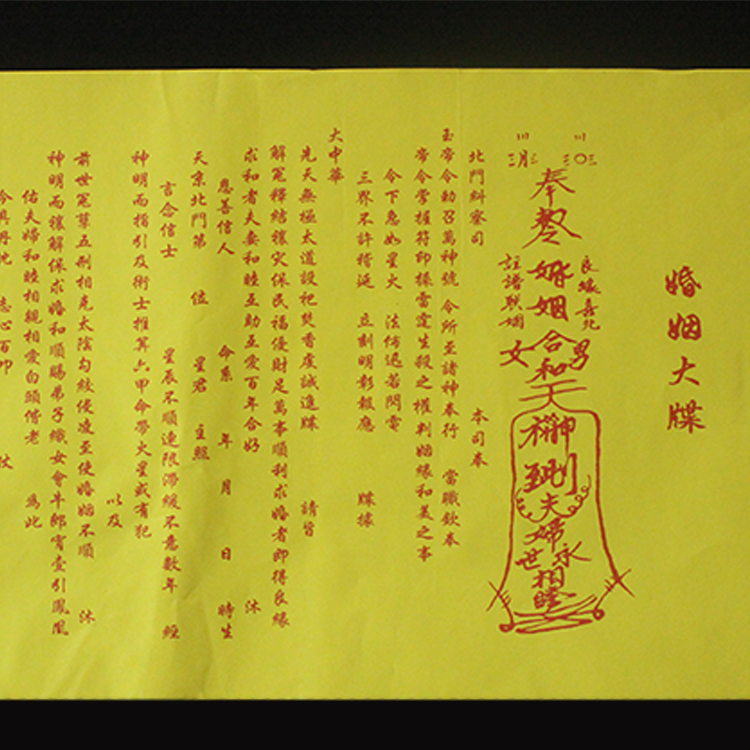 婚姻大牒
奉
婚姻合和
男
女
天
神
到
夫婦永世相睦
北門糾察司
本司奉
玉帝令勅召萬神號 令所至諸神奉行 當職欽奉
帝令掌握符印操雷霆生殺之權判姻緣和美之事
令下急如星火 法仿迅若閃電
三界不許稽延 立刻明彰報應 牒據
大中華
先天無極太道設祀焚香虔誠進牒 請皆
解冤釋結禳災保民福優財足萬事順利求婚者即得良緣
求和者夫妻和睦互助互愛百年合好 沐
恩善信人 命系 年 月 日 時生
天京北門第 位 星君 主照
言念信士 星辰不順連限滯緩不意數年 經
神明而指引及術士推算六甲命勞火星或有犯
以及
前世冤孽五刑相克太陰勾絞侵凌至使婚姻不順 沐
神明而禳解保求婚和順賜弟子織女會牛郎宵壹引鳳凰
佑夫婦和睦相親相愛白頭偕老 為此